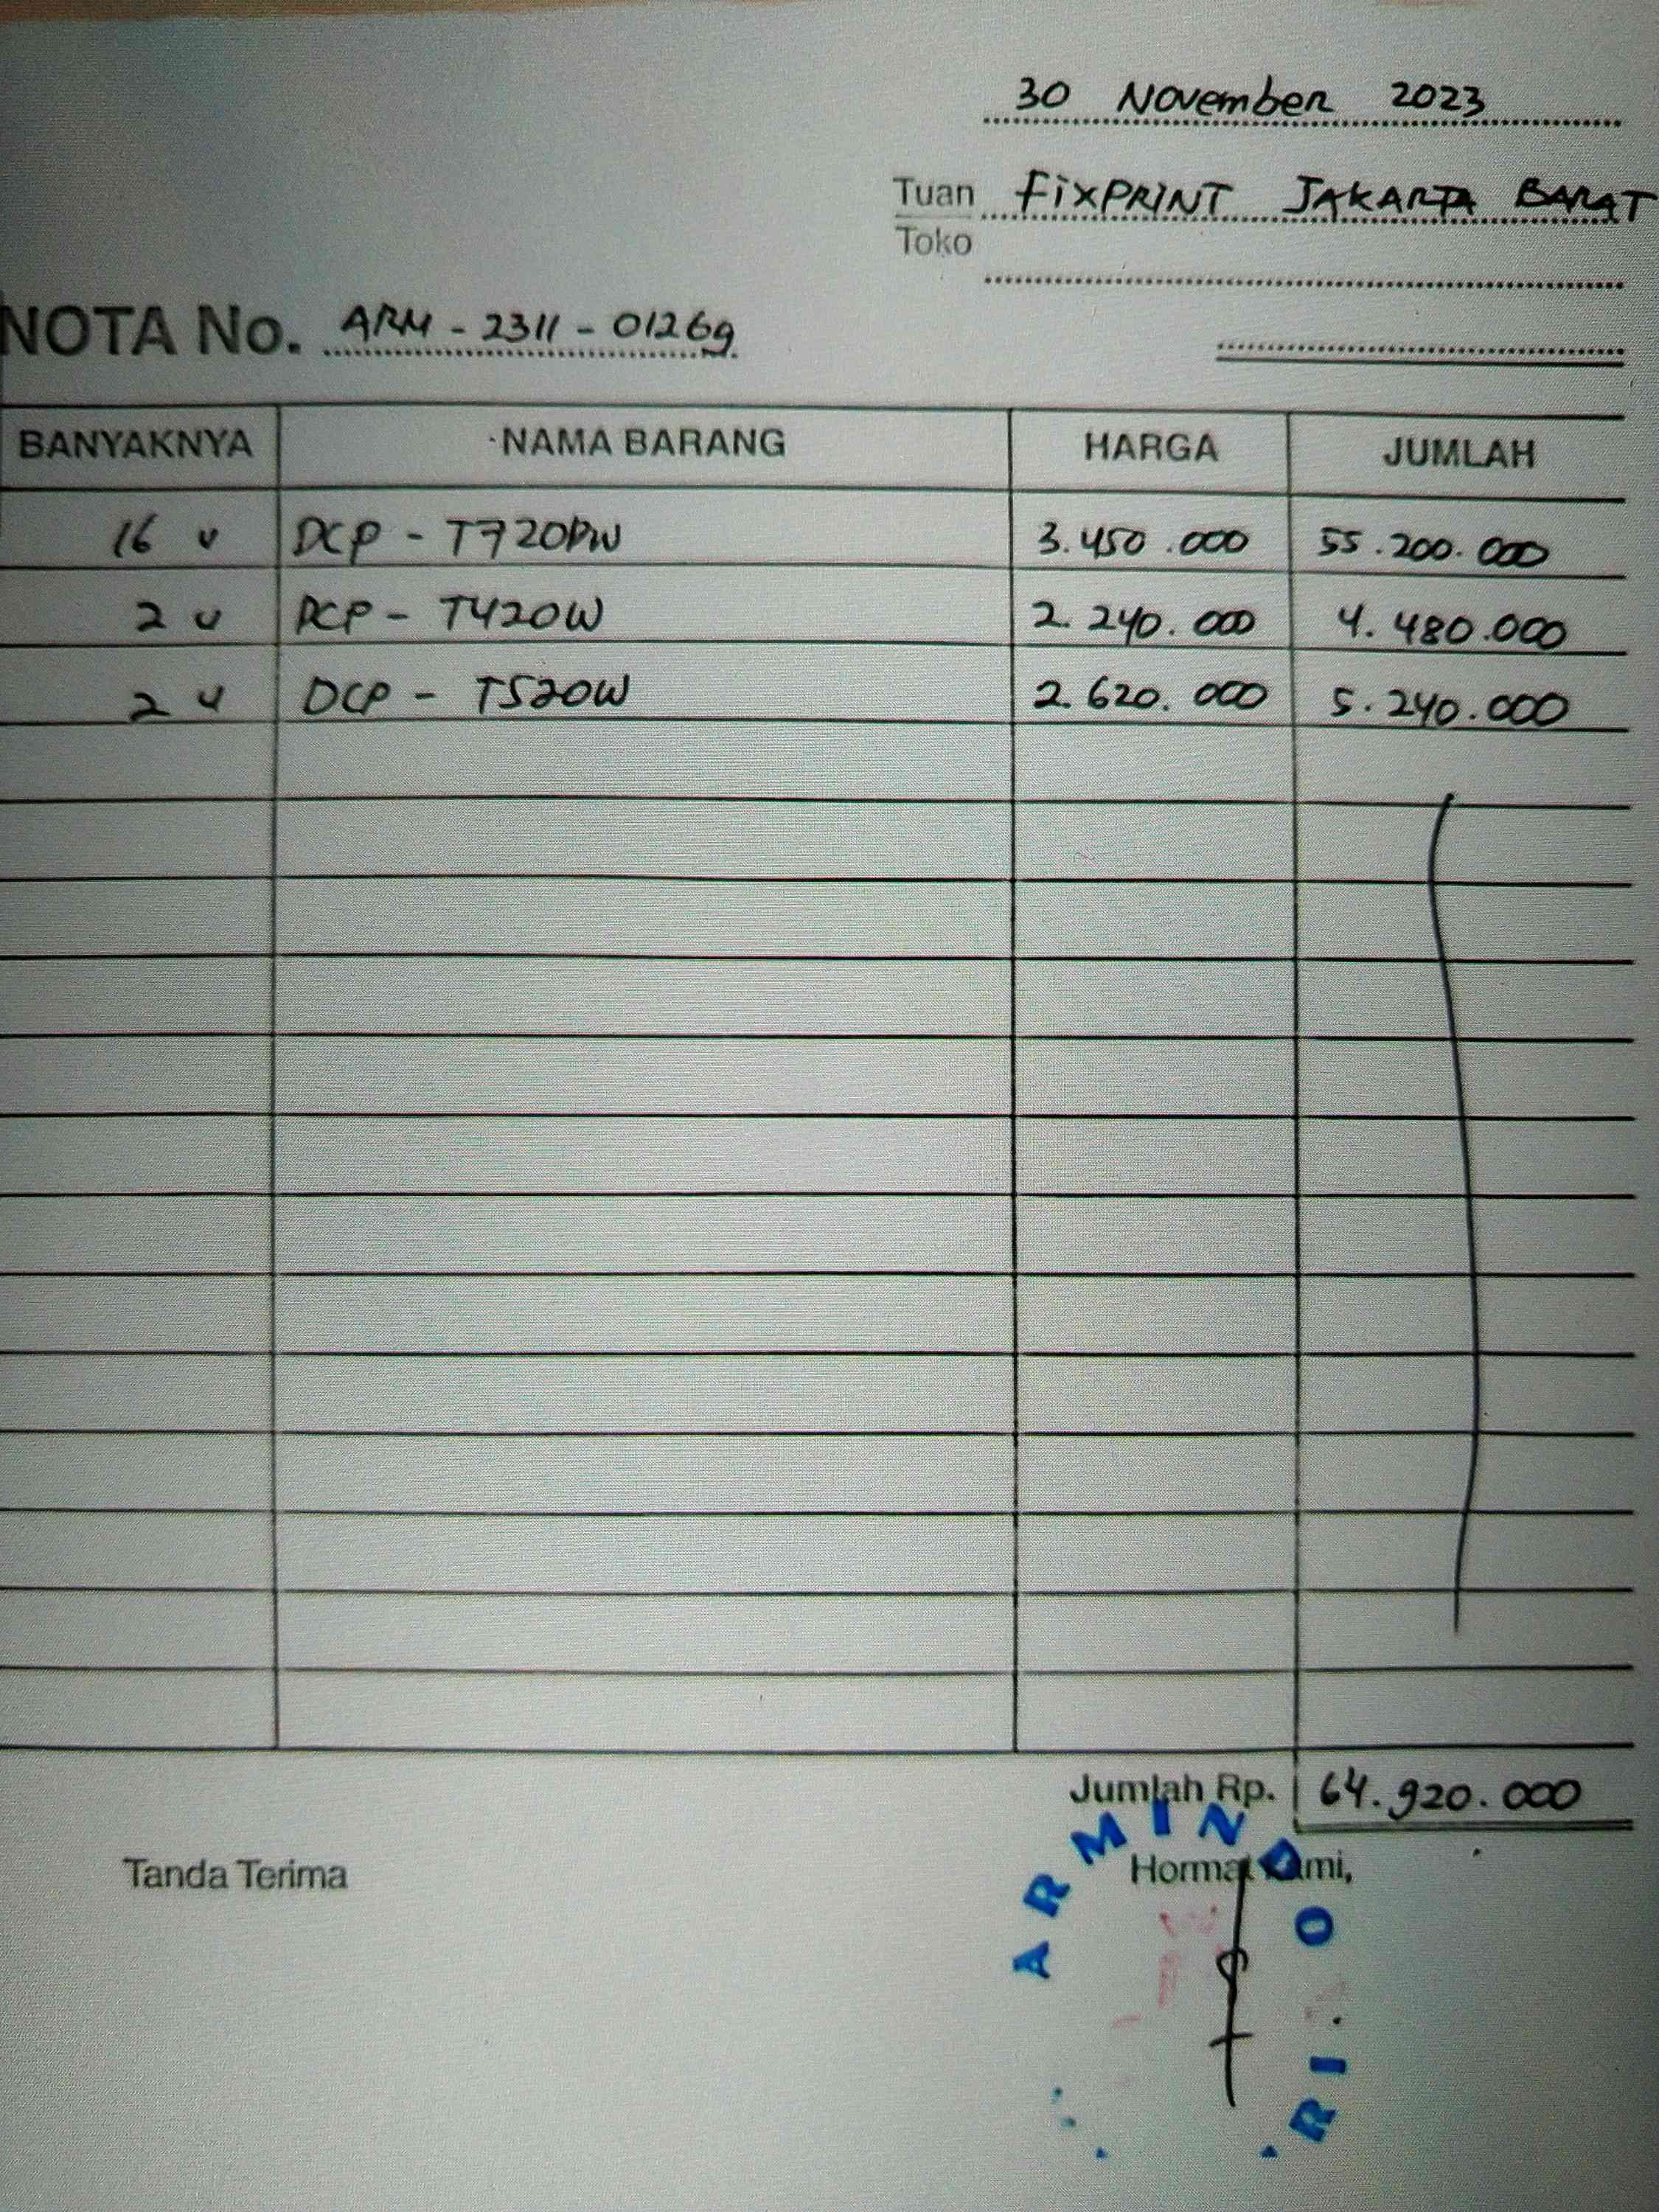 30 November 2023
Tuan FIXPRINT JAKARTA BARAT
Toko
NOTA No. ARM - 2311 - 01269
BANYAKNYA NAMA BARANG HARGA JUMLAH
16 U DCP - T720DW 3.450.000 55.200.000
2 U DCP - T420W 2.240.000 4.480.000
2 U DCP - T520W 2.620.000 5.240.000
Jumlah Rp. 64.920.000
Tanda Terima Hormat Kami,
ARMINDO